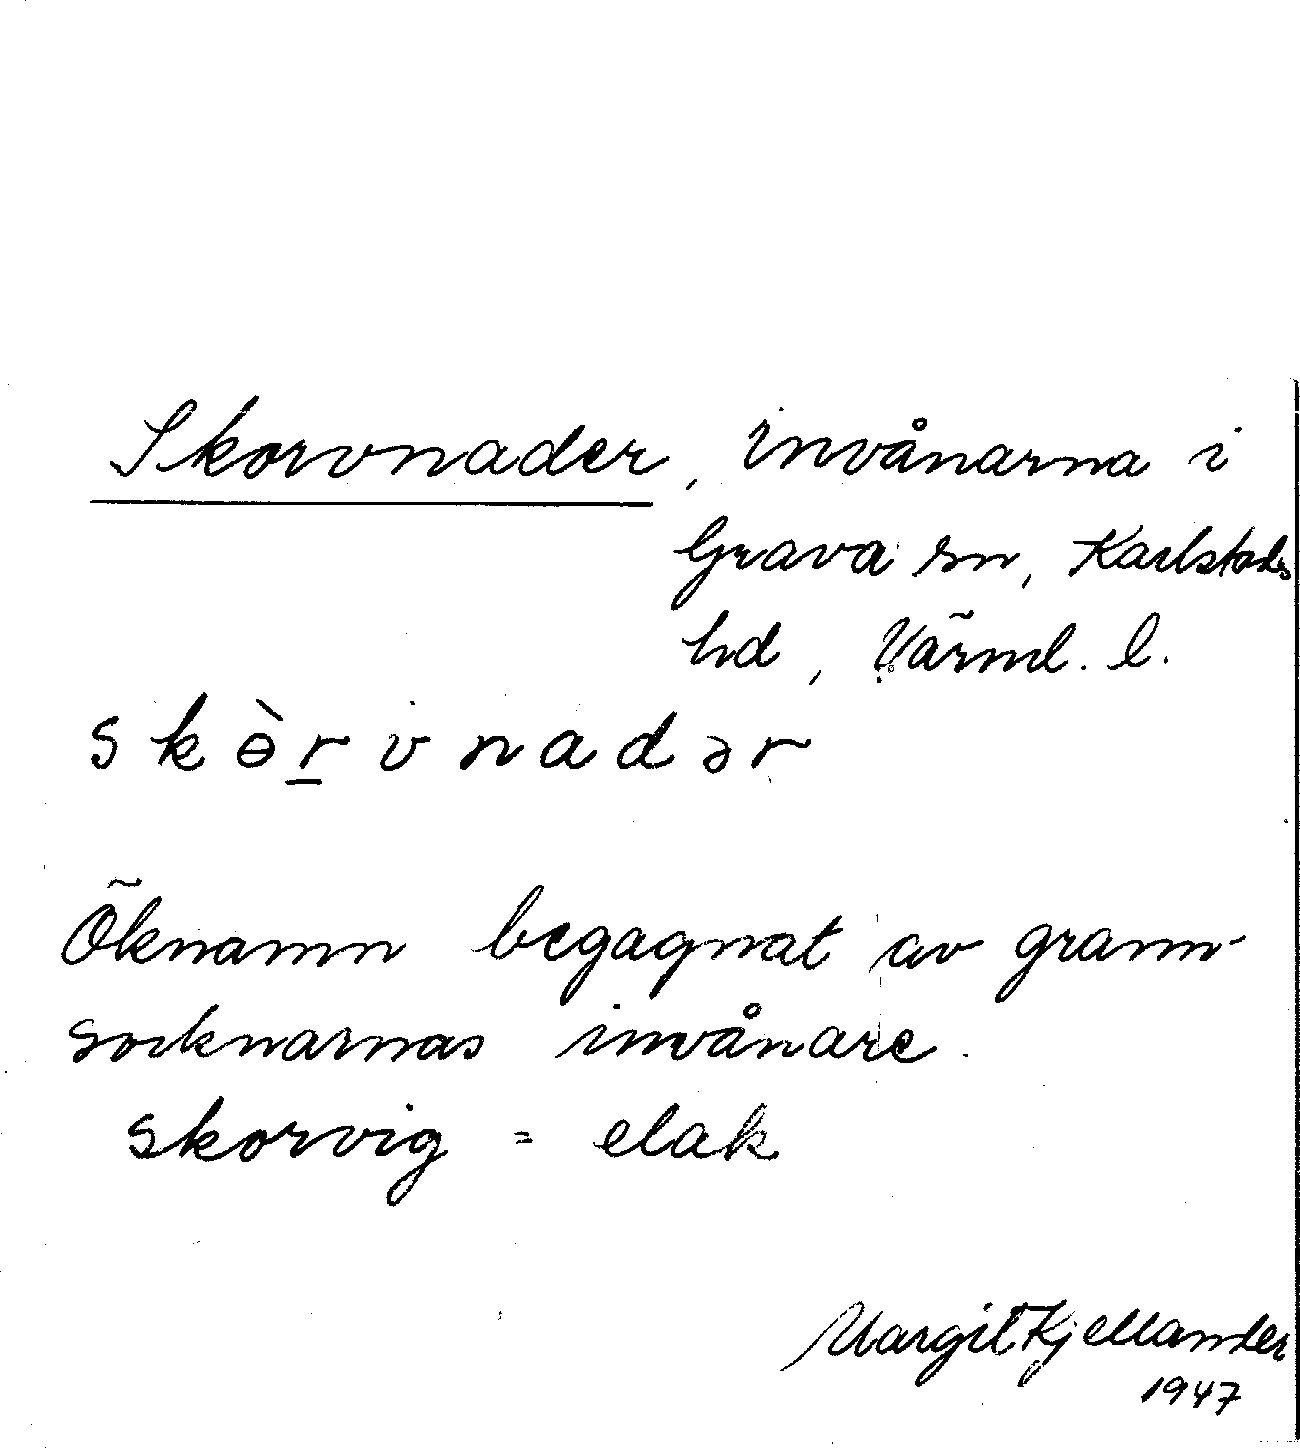 Skorvnader, invånarna i
Grava sn, Karlstads
hd, Värml. l.
skɵ̀r̲vnadər
Öknamn begagnat av grann-
socknarnas invånare.
skorvig = elak
Margit Kjellander
1947